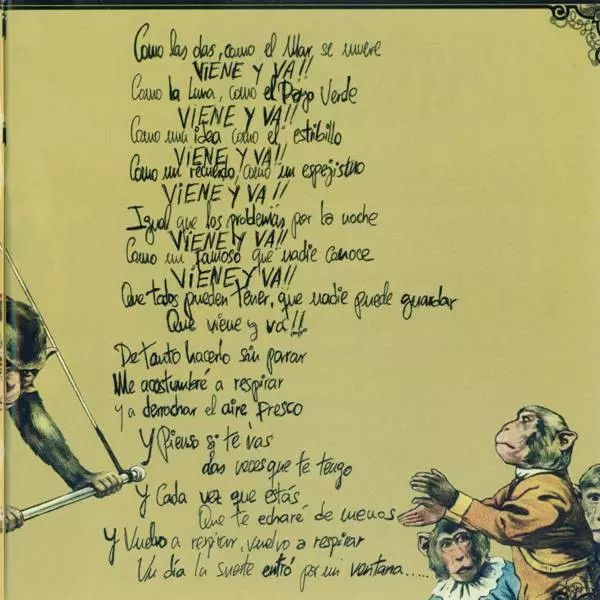 Como las olas, como el Mar, se mueve
VIENE Y VA!!
Como la Luna, como el Rayo Verde
VIENE Y VA!!
Como una idea como el estribillo
VIENE Y VA!!
Como un recuerdo, como un espejismo
VIENE Y VA!!
Igual que los problemas por la noche
VIENE Y VA!!
Como un famoso que nadie conoce
VIENE Y VA!!
Que todos pueden tener, que nadie puede guardar
Que viene y va!!
De tanto hacerlo sin parar
Me acostumbré a respirar
Y a derrochar el aire fresco
Y Pienso si te vas
dos veces que te tengo
Y Cada vez que estás
Que te echaré de menos
Y Vuelvo a respirar, vuelvo a respirar
Un día la suerte entró por mi ventana.....